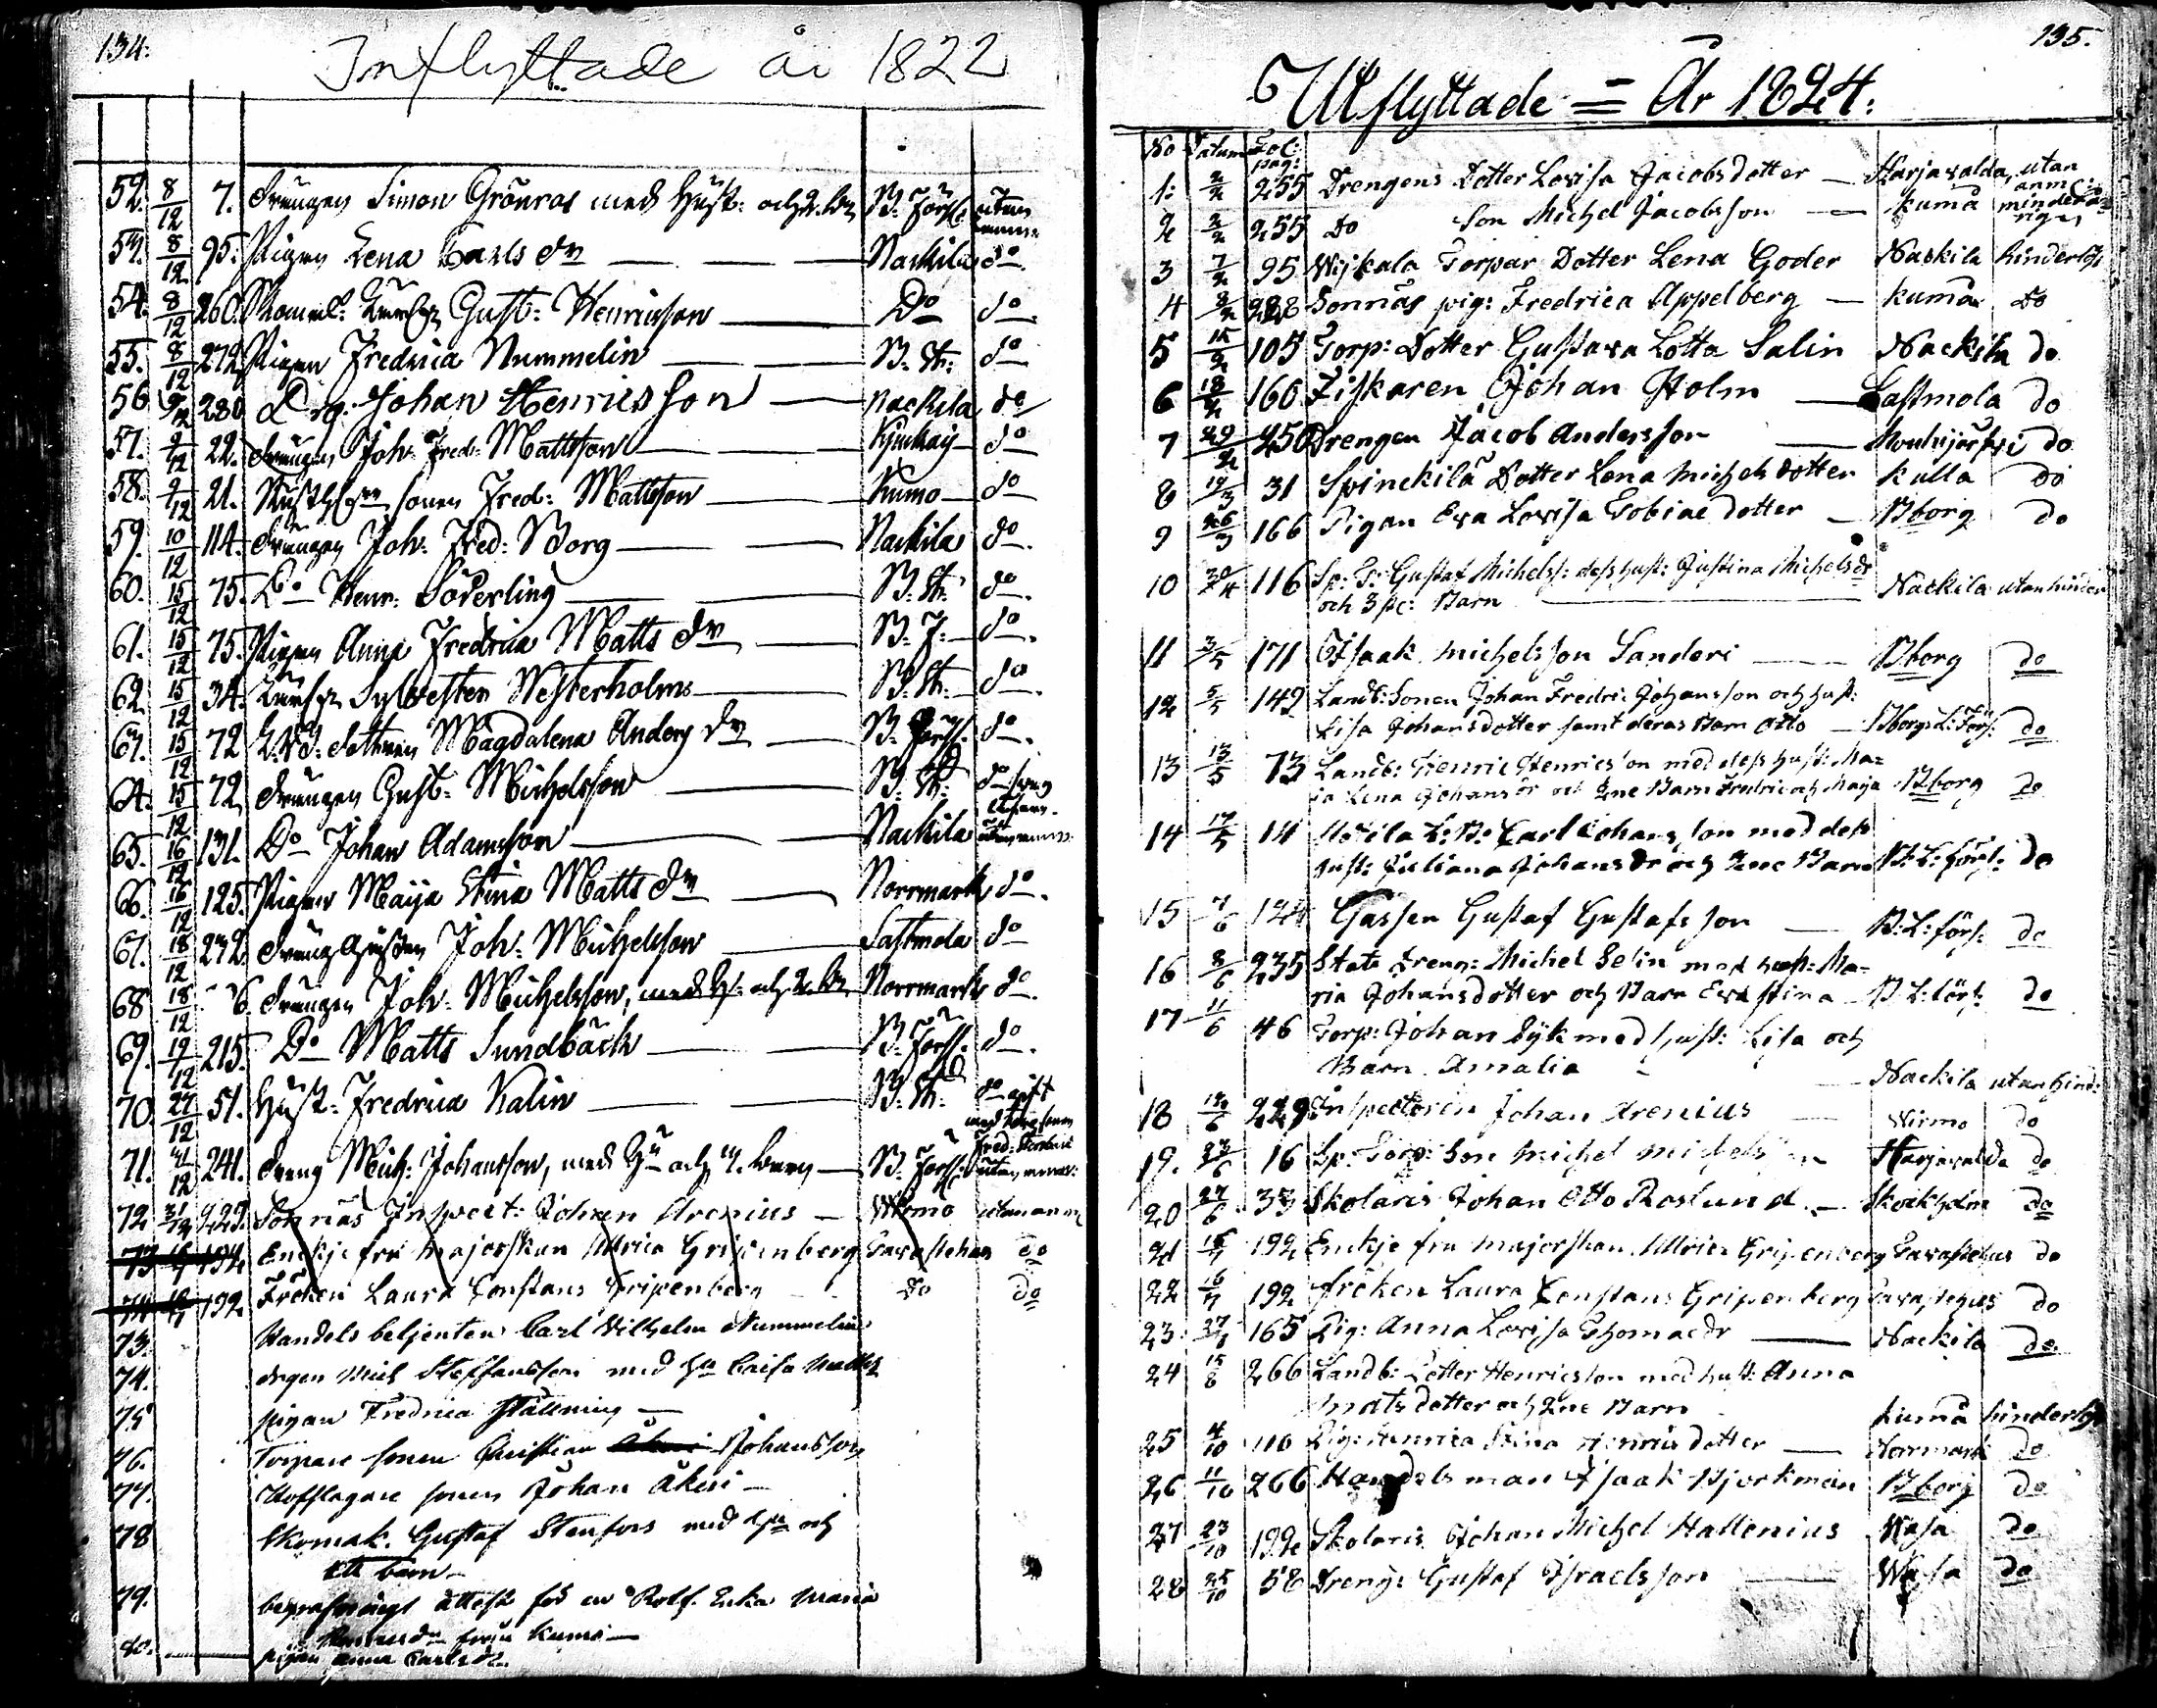 134:
Inflyttade år 1822
52. 8/12 7. Drengen Simon Grönros med Hust: och 2. B. Försl: utan anm:
53. 8/12 95. Pigan Lena Carls dr Nackila do
54. 8/12 260. Gust: Henricsson Do do
55. 8/12 272 Pigan Fredrica Nummelin B. St: do
56 9/12 280 Drg: Johan Henricsson Nackila do
57. 9/12 22. Drengen Joh: Fred: Mattsson do
58. 9/12 21. sonen Fred: Mattsson Kumo do
59. 10/12 114. Drengen Joh: Fred: Borg Nackila do
60. 15/12 75. Do Henr: Söderling B. St: do
61. 15/12 75. Pigan Anna Fredrica Matts dr B: F: do
62. 15/12 34. Sylvester Westerholm B: St: do
63. 15/12 72 Magdalena Anders dr B. Försl. do
64. 15/12 72. Drengen Gust: Michelsson B: St: do
65. 16/12 131. Do Johan Adamsson Nackila
66. 16/12 125. Pigan Maija Stina Matts dr Norrmark do
67. 18/12 272 Joh: Michelsson Sastmola do
68 18/12 6. Drengen Joh: Michelsson, med H: och 2. Norrmark do
69. 19/12 215. Do Matts Sundbäck B: Försl: do
70. 27/12 51. Hust: Fredrica Kalin B: St: do gift
71. 31/12 241. Dreng Mich: Johansson, med Hu och B. Försl:
72 31/12 229. Sonnäs Inspect: Johan Arenius Wirmo utan anm
73 Enckje fru Majorskan Ulrica Gripenberg Tavastehus do
74 192 Fröken Laura Constans Gripenberg do do
73. Handels betjenten Carl Wilhelm Nummelin
74. drgen Mich Steffansson med Hu Caisa
75 pigan Fredrica Ställning
76. Torpare sonen Christian Johansson
77. Hofslagare sonen Johan Åkeri
78 Skomak. Gustaf Stenfors med Hu och
ett barn
79. begrafnings attest för en Rotf. Enka Maria
från Kumo
80. pigan Anna Carlsdr.
135.
Utflyttade = År 1824:
No Datum Fol: pag:
1: 2/2 255 Drengens Dotter Lovisa Jacobsdotter Harjavalda, utan anm:
2 2/2 255 Do Son Michel Jacobsson Kumå minderårigen
3 7/2 95 Wijkala Torpar Dotter Lena Goder Nackila hinderlös
4 8/2 228 Sonnäs pig: Fredrica Appelberg Kumå Do
5 15/2 105 Torp: Dotter Gustava Lotta Salin Nackila do
6 18/2 160 Fiskaren Johan Holm Sastmola do
7 29/2 250 Drengen Jacob Andersson Mouhijärfvi do
8 19/3 31 Svinekila Dotter Lena Michelsdotter Kulla do
9 26/3 166 Pigan Eva Lovisa Tobiae dotter Bborg do
10 20/4 116 Sp: T: Gustaf Michelss: dess hust: Justina Michelsdr
och 3 st: Barn Nackila utan hinder
11 3/5 171 Isaak Michelsson Sanderi Bborg do
12 5/5 149 Landb: Sonen Johan Fredr: Johansson och hust:
Lisa Johansdotter samt deras Barn Otto Bborgs L: Förs: do
13 13/5 73 Landb: Henric Henricsson med dess hust: Ma=
ia Lena Johansdr och 2ne Barn Fredric och Maija Bborg do
14 17/5 14 L: B: Carl Johansson med dess
hust: Juliana Johansdr och 2ne Barn B: L: förs: do
15 4/6 124 Gossen Gustaf Gustafsson B: L: förs: do
16 8/6 235 Stats Dreng: Michel Selin med hust: Ma=
ria Johansdotter och Barn Eva Stina B: L: förs: do
17 11/6 46 Torp: Johan Syk med hust: Lisa och
Barn Amalia Nackila utan hind:
18 12/6 229 Inspectoren Johan Arenius Wirmo do
19. 23/6 16 Sp: Torp: Son Michel Michelsson Harjavalda do
20 27/6 33 Skolaris Johan Otto Roslund Stockholm do
21 16/7 192 Enckje fru Majorskan Ulrica Gripenberg Tavastehus do
22 16/7 192 fröken Laura Constans Gripenberg Tavastehus do
23 165 Pig: Anna Lovisa Thomaedr Nackila do
24 15/8 266 Landb: Petter Henricsson med hust: Anna
Matsdotter och 2ne Barn Kumå hinderlös
25 4/10 110 Pig: Henrica Stina Henricsdotter Norrmark do
26 11/10 266 Handelsman Isaak Bjorkman Bborg do
27 23/10 192 Skolaris Johan Michel Hallenius Wasa do
28 25/10 58 Dreng: Gustaf Israelsson Wasa do